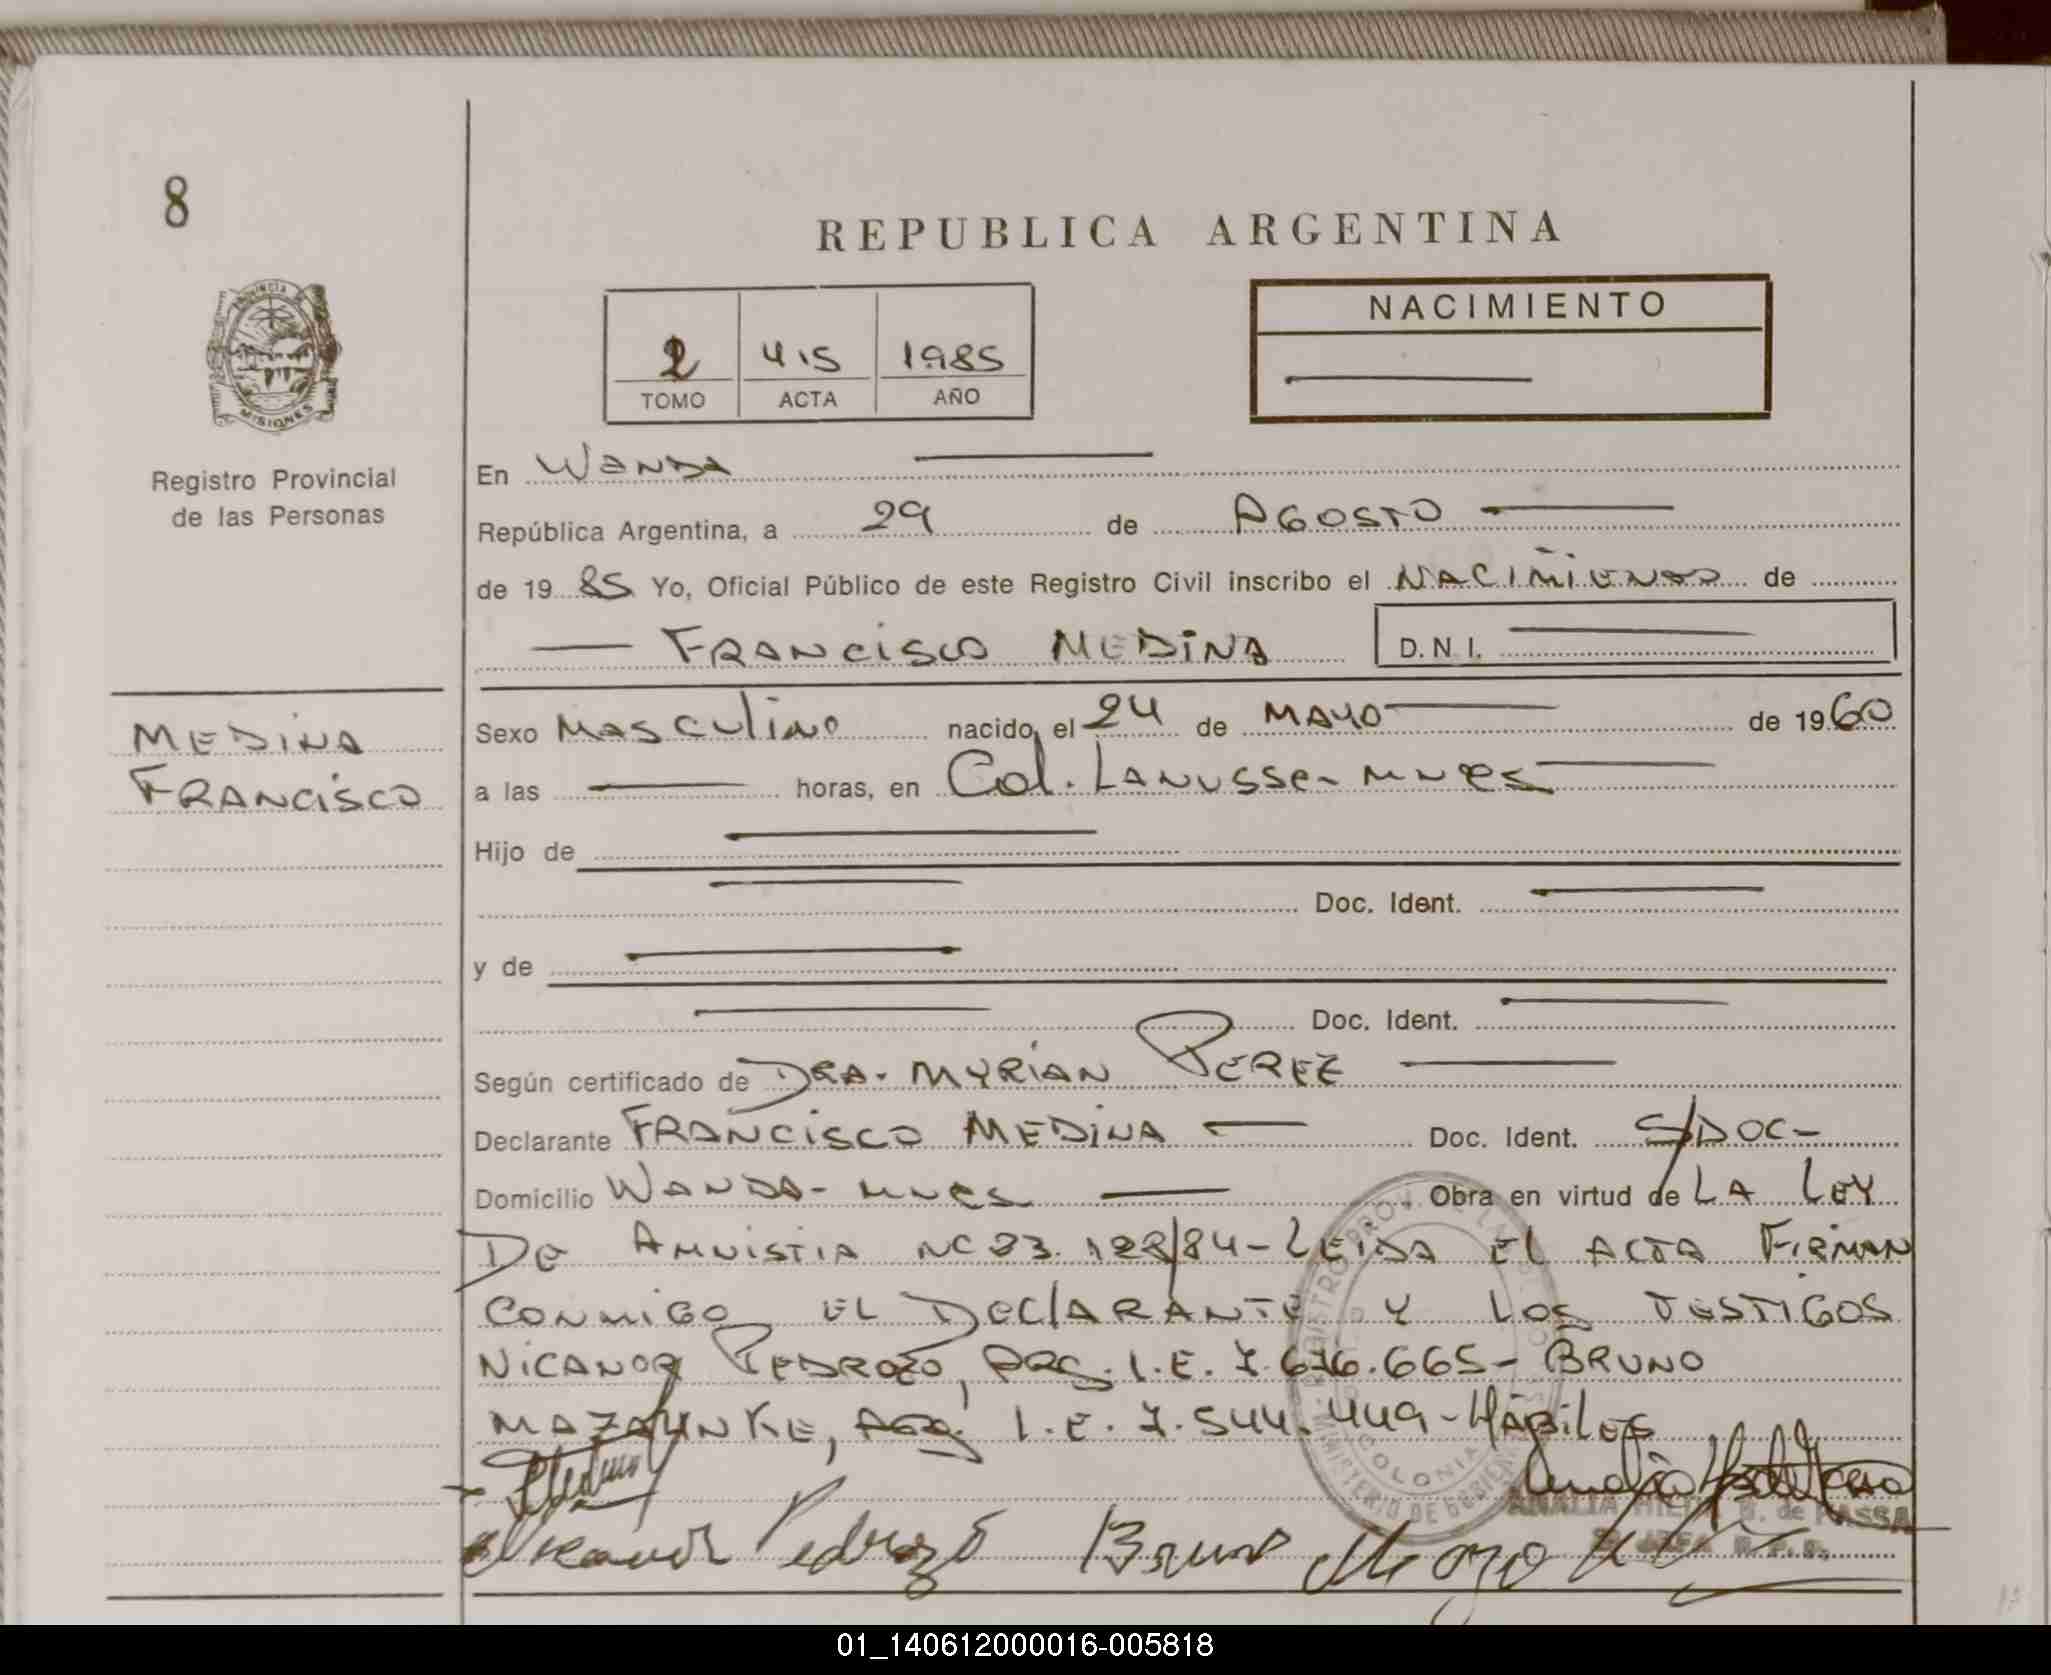 8
REPUBLICA ARGENTINA
PROVINCIA DE
MISIONES
Registro Provincial
de las Personas
2 415 1985
TOMO ACTA AÑO
NACIMIENTO
En WANDA
República Argentina, a 29 de AGOSTO
de 1985 Yo, Oficial Público de este Registro Civil inscribo el NACIMIENTO de
FRANCISCO MEDINA D.N.I.
MEDINA
FRANCISCO
Sexo MASCULINO nacido, el 24 de MAYO de 1960
a las horas, en Col. LANUSSE- MNES
Hijo de
Doc. Ident.
y de
Doc. Ident.
Según certificado de DRA. MYRIAN PEREZ
Declarante FRANCISCO MEDINA Doc. Ident. S/DOC-
Domicilio WANDA- MNES Obra en virtud de LA LEY
DE AMNISTIA Nº 23.128/84- LEIDA EL ACTA FIRMAN
CONMIGO EL DECLARANTE Y LOS TESTIGOS
NICANOR PEDROZO, ARG. I.E. 7.676.665- BRUNO
MAZAUNKE, ARG. I.E. 7.544.449- HÁBILES
Nicanor Pedrozo Bruno
ANALIA de MASSA
01_140612000016-005818